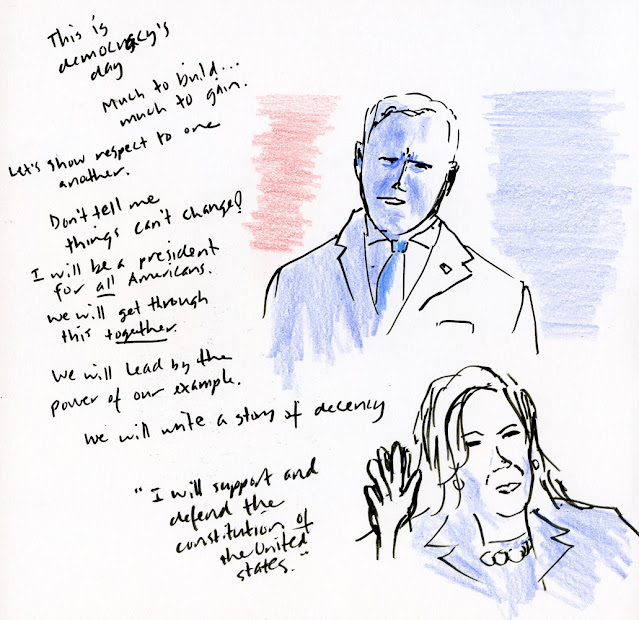 This is
democracy's
day
Much to build...
much to gain.
Let's show respect to one
another.
Don't tell me
things can't change!
I will be a president
for all Americans.
We will get through
this together.
We will lead by the
power of our example.
We will write a story of decency
"I will support and
defend the
constitution of
the United
states."